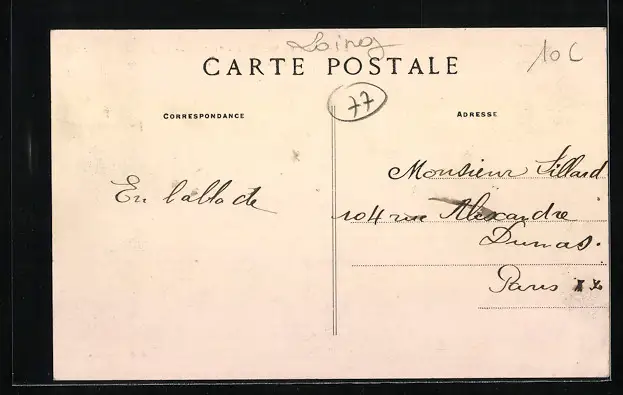 10C
CARTE POSTALE
77
CORRESPONDANCE
ADRESSE
Monsieur Tillard
104 rue Alexandre
Dumas.
Paris XX
En ballade